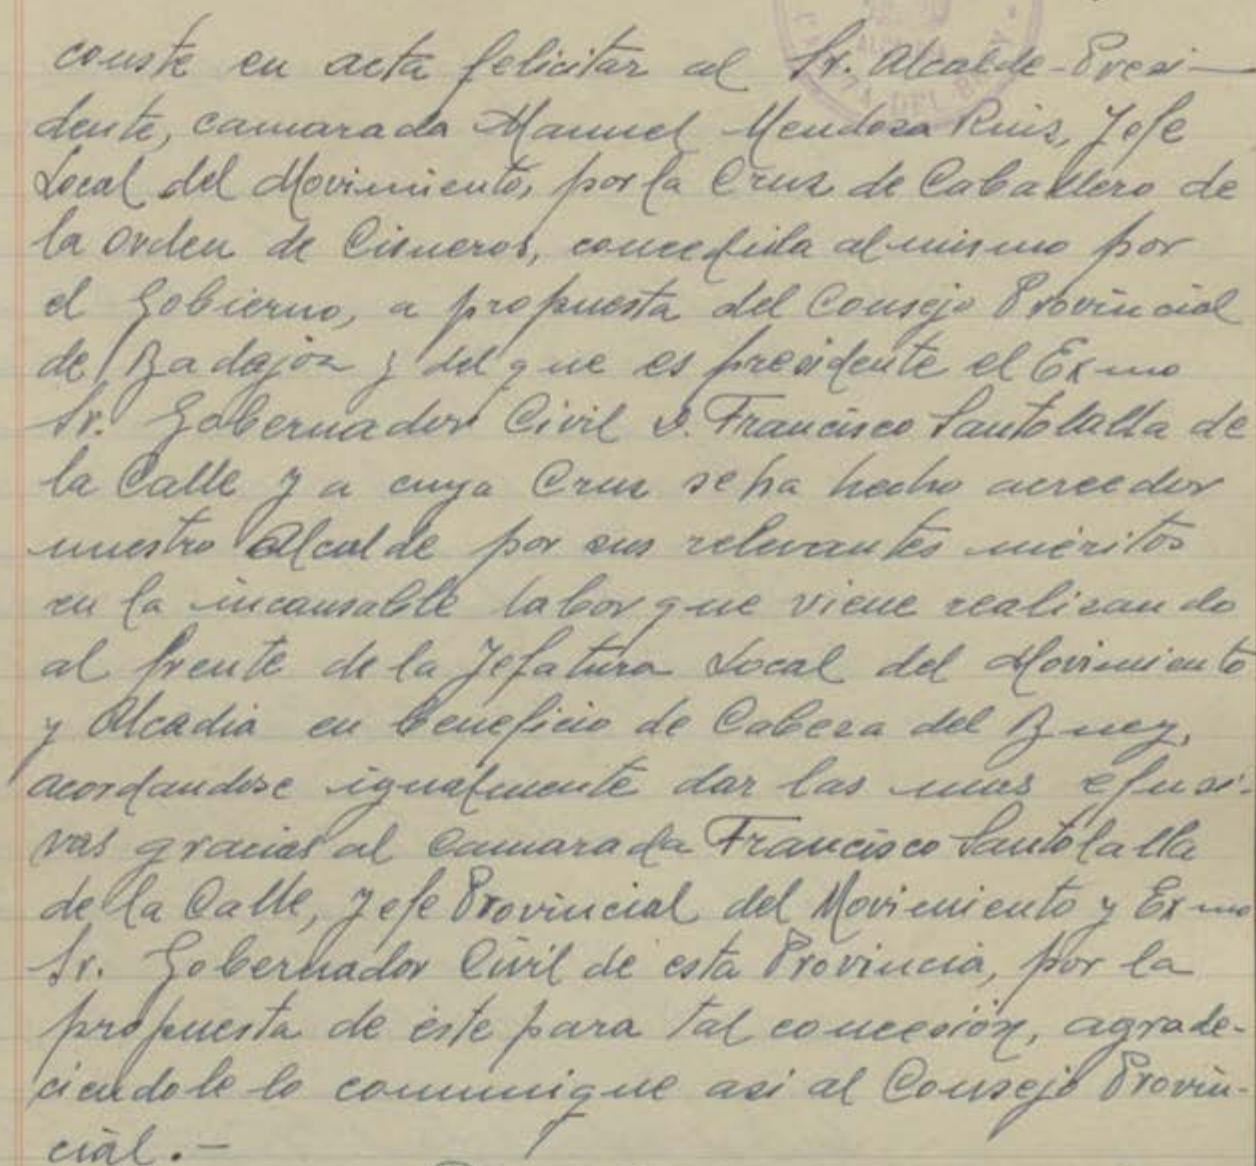 conste en acta felicitar al Sr. Alcalde-Presi-
dente, camarada Manuel Mendoza Ruiz, Jefe
Local del Movimiento, por la Cruz de Caballero de
la Orden de Cisneros, concedida al mismo por
el Gobierno, a propuesta del Consejo Provincial
de Badajoz y del que es presidente el Exmo
Sr. Gobernador Civil D. Francisco Santolalla de
la Calle y a cuya Cruz se ha hecho acreedor
nuestro Alcalde por sus relevantes méritos
en la incansable labor que viene realizando
al frente de la Jefatura Local del Movimiento
y Alcadia en beneficio de Cabeza del Buey,
acordandose igualmente dar las mas efusi-
vas gracias al camarada Francisco Santolalla
de la Calle, Jefe Provincial del Movimiento y Exmo
Sr. Gobernador Civil de esta Provincia, por la
propuesta de éste para tal concesión, agrade-
ciendole lo comunique asi al Consejo Provin-
cial.-